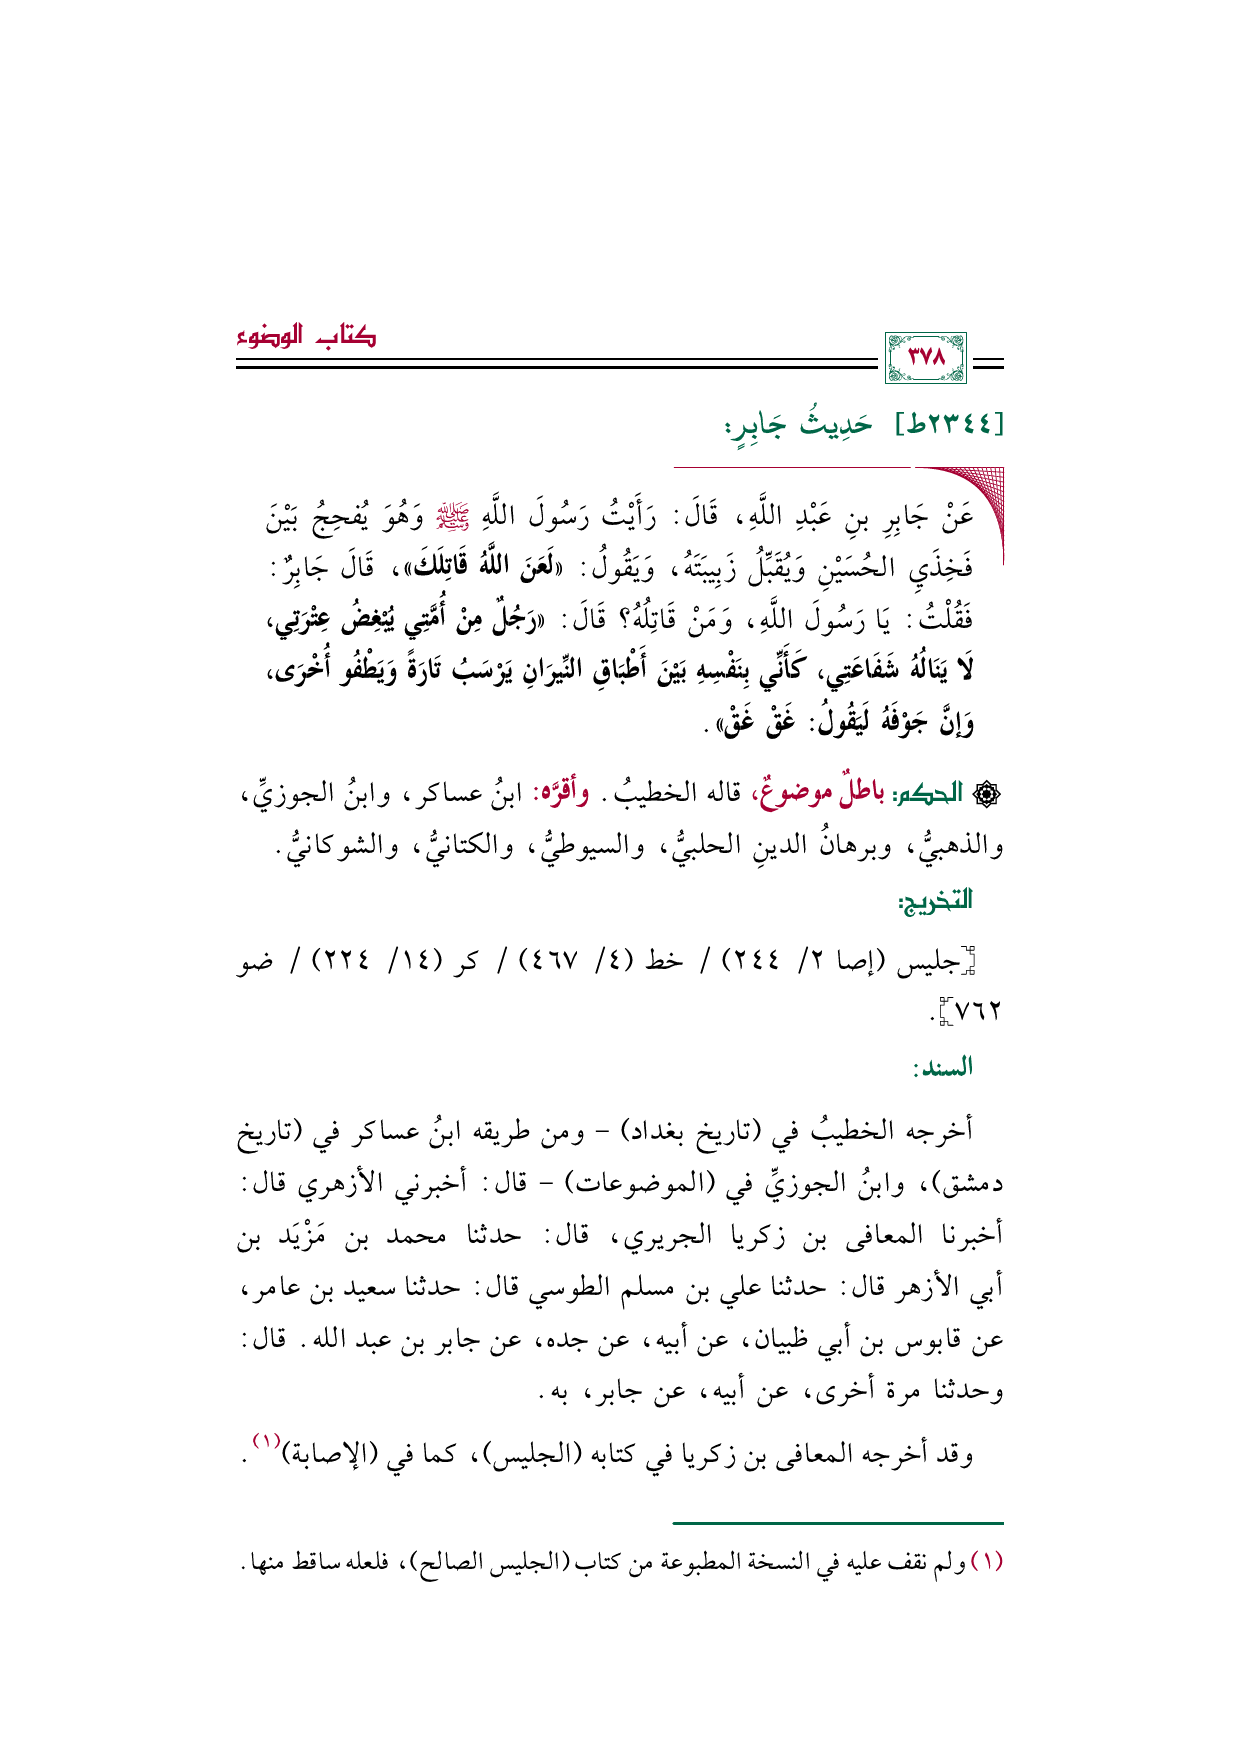 كتاب الوضوء
٣٧٨
[٢٣٤٤ط] حَدِيثُ جَابِرٍ:
عَنْ جَابِرِ بنِ عَبْدِ اللَّهِ، قَالَ: رَأَيْتُ رَسُولَ اللَّهِ ﷺ وَهُوَ يُفحِجُ بَيْنَ
فَخِذَيِ الحُسَيْنِ وَيُقَبِّلُ زَبِيبَتَهُ، وَيَقُولُ: «لَعَنَ اللَّهُ قَاتِلَكَ»، قَالَ جَابِرٌ:
فَقُلْتُ: يَا رَسُولَ اللَّهِ، وَمَنْ قَاتِلُهُ؟ قَالَ: «رَجُلٌ مِنْ أُمَّتِي يُبْغِضُ عِتْرَتِي،
لَا يَنَالُهُ شَفَاعَتِي، كَأَنِّي بِنَفْسِهِ بَيْنَ أَطْبَاقِ النِّيرَانِ يَرْسَبُ تَارَةً وَيَطْفُو أُخْرَى،
وَإِنَّ جَوْفَهُ لَيَقُولُ: غَقْ غَقْ».
الحكم: باطلٌ موضوعٌ، قاله الخطيبُ. وأقرَّه: ابنُ عساكر، وابنُ الجوزيِّ،
والذهبيُّ، وبرهانُ الدينِ الحلبيُّ، والسيوطيُّ، والكتانيُّ، والشوكانيُّ.
التخريج:
[جليس (إصا ٢/ ٢٤٤) / خط (٤/ ٤٦٧) / كر (١٤/ ٢٢٤) / ضو
٧٦٢].
السند:
أخرجه الخطيبُ في (تاريخ بغداد) – ومن طريقه ابنُ عساكر في (تاريخ
دمشق)، وابنُ الجوزيِّ في (الموضوعات) – قال: أخبرني الأزهري قال:
أخبرنا المعافى بن زكريا الجريري، قال: حدثنا محمد بن مَزْيَد بن
أبي الأزهر قال: حدثنا علي بن مسلم الطوسي قال: حدثنا سعيد بن عامر،
عن قابوس بن أبي ظبيان، عن أبيه، عن جده، عن جابر بن عبد الله. قال:
وحدثنا مرة أخرى، عن أبيه، عن جابر، به.
وقد أخرجه المعافى بن زكريا في كتابه (الجليس)، كما في (الإصابة)(١).
(١) ولم نقف عليه في النسخة المطبوعة من كتاب (الجليس الصالح)، فلعله ساقط منها.